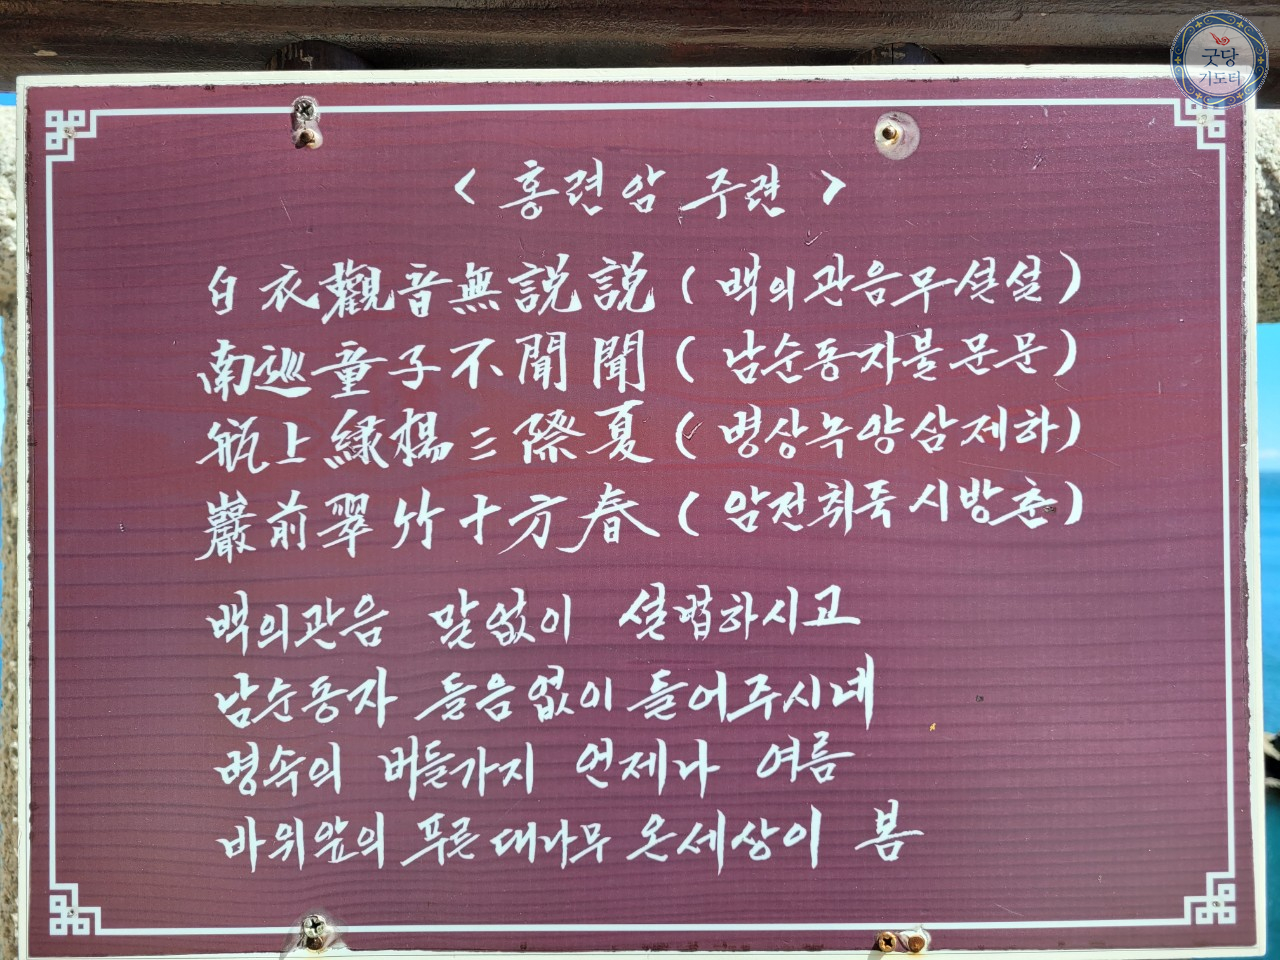 굿당
기도터
< 홍련암 주련 >
白衣觀音無説説 (백의관음무설설)
南巡童子不聞聞 (남순동자불문문)
甁上綠楊三際夏 (병상녹양삼제하)
巖前翠竹十方春 (암전취죽시방춘)
백의관음 말없이 설법하시고
남순동자 들음없이 들어주시네
병속의 버들가지 언제나 여름
바위앞의 푸른대나무 온세상이 봄